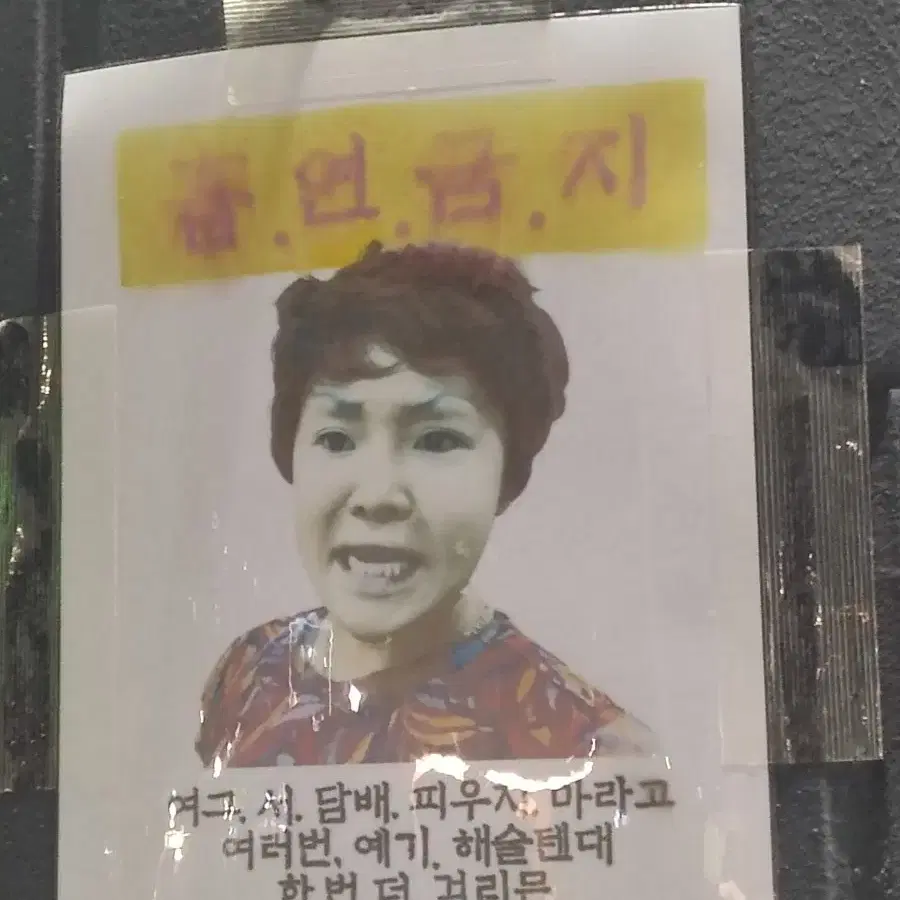 흡.연.금.지
여그.서.담배.피우지.마라고
여러번.예기.해슬텐대
한번.더.걸리믄